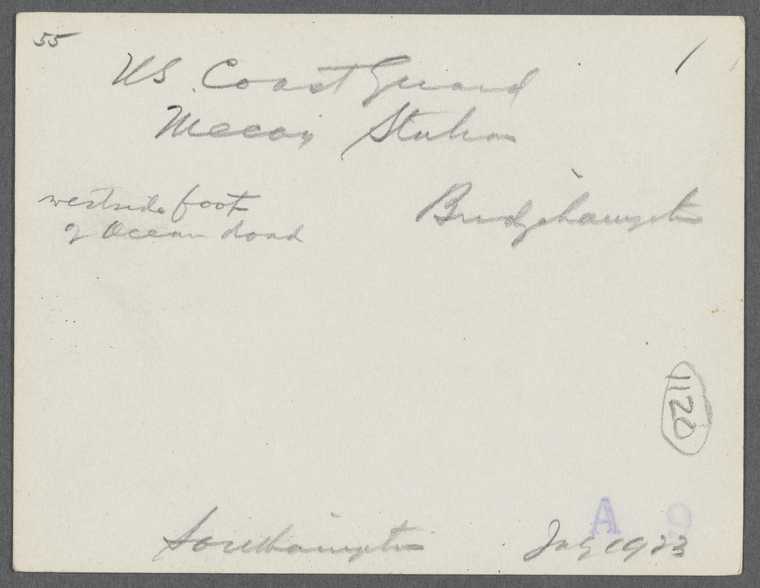 55
US. Coast Guard
Mecox Station
westside foot
of Ocean Road
Bridgehampton
1120
A 9
Southampton July 1923